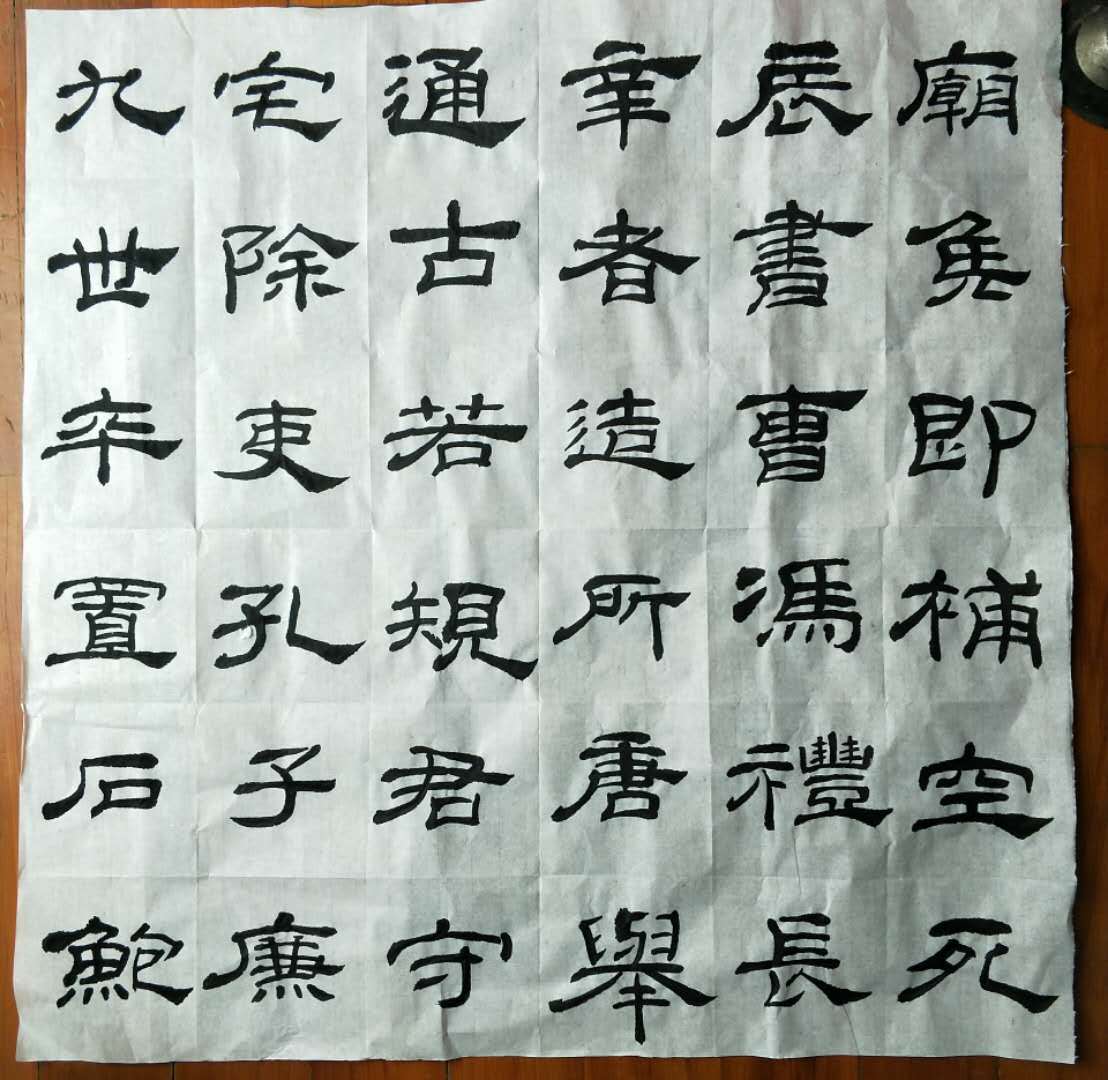 廟即補空死
辰書曹馮禮長
幸者造所唐舉
通古若規君守
宅除吏孔子廉
九世卒置石鮑